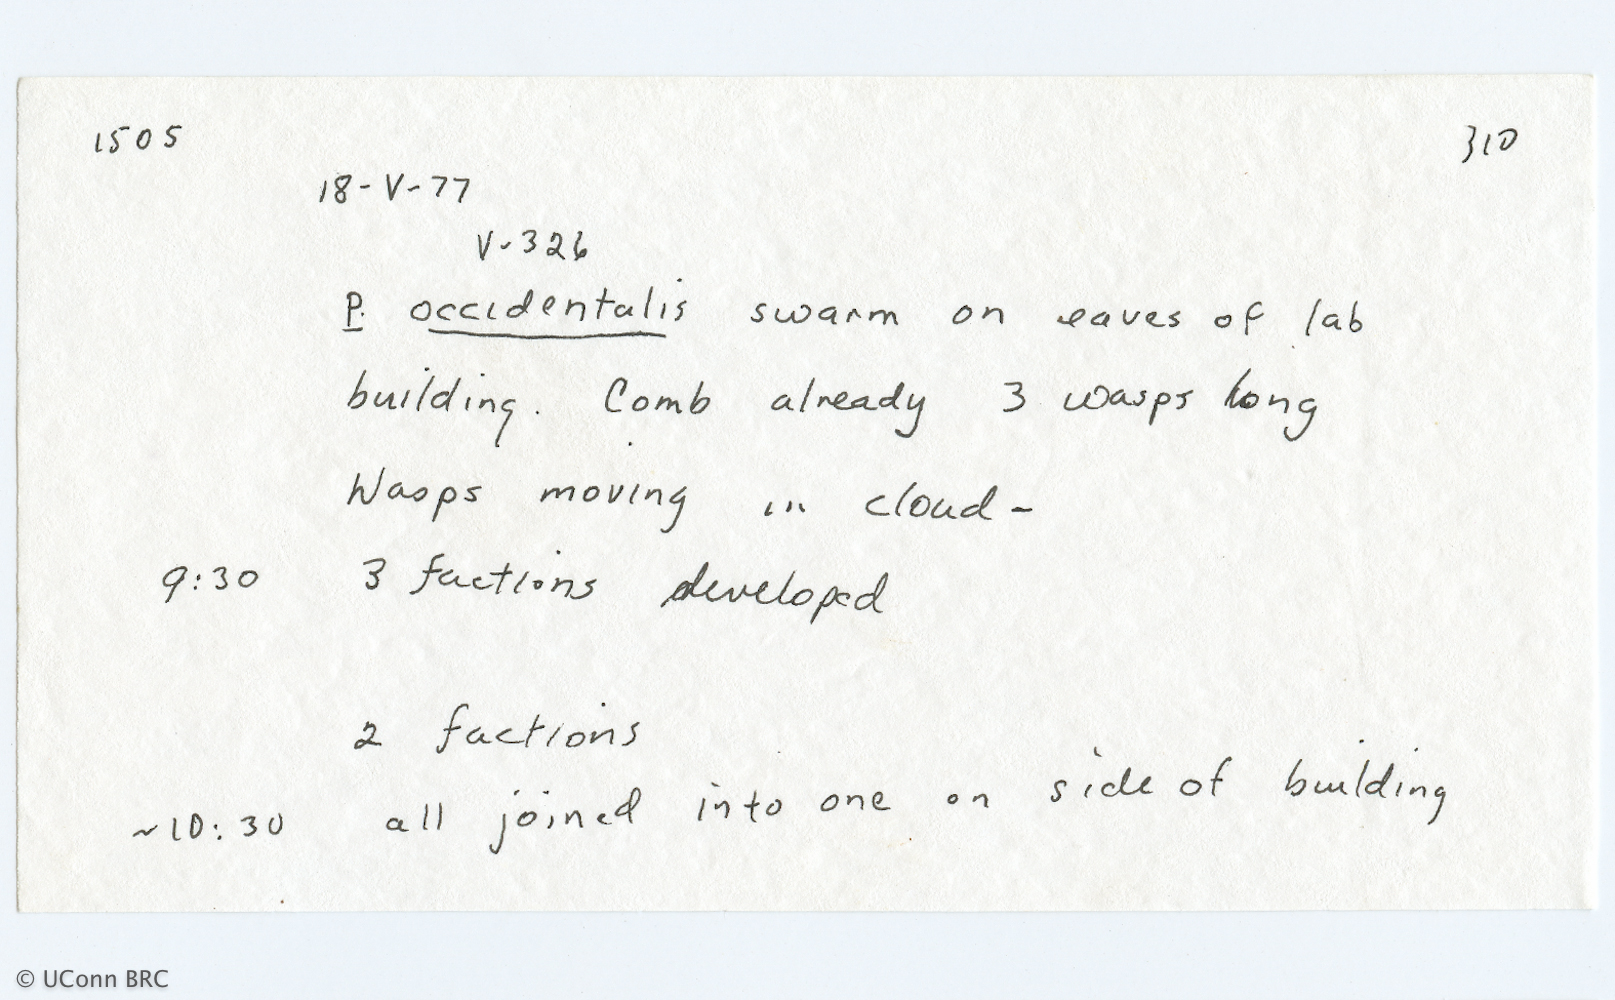 1505 310
18-V-77
V-326
P. occidentalis swarm on eaves of lab
building. Comb already 3 wasps long
Wasps moving in cloud-
9:30 3 factions developed
2 factions
~10:30 all joined into one on side of building
© UConn BRC